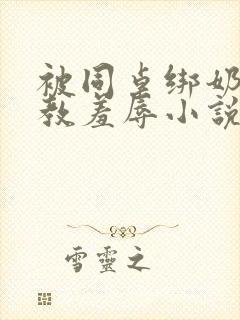 被同桌绑奶
教羞辱小説
雪靈之